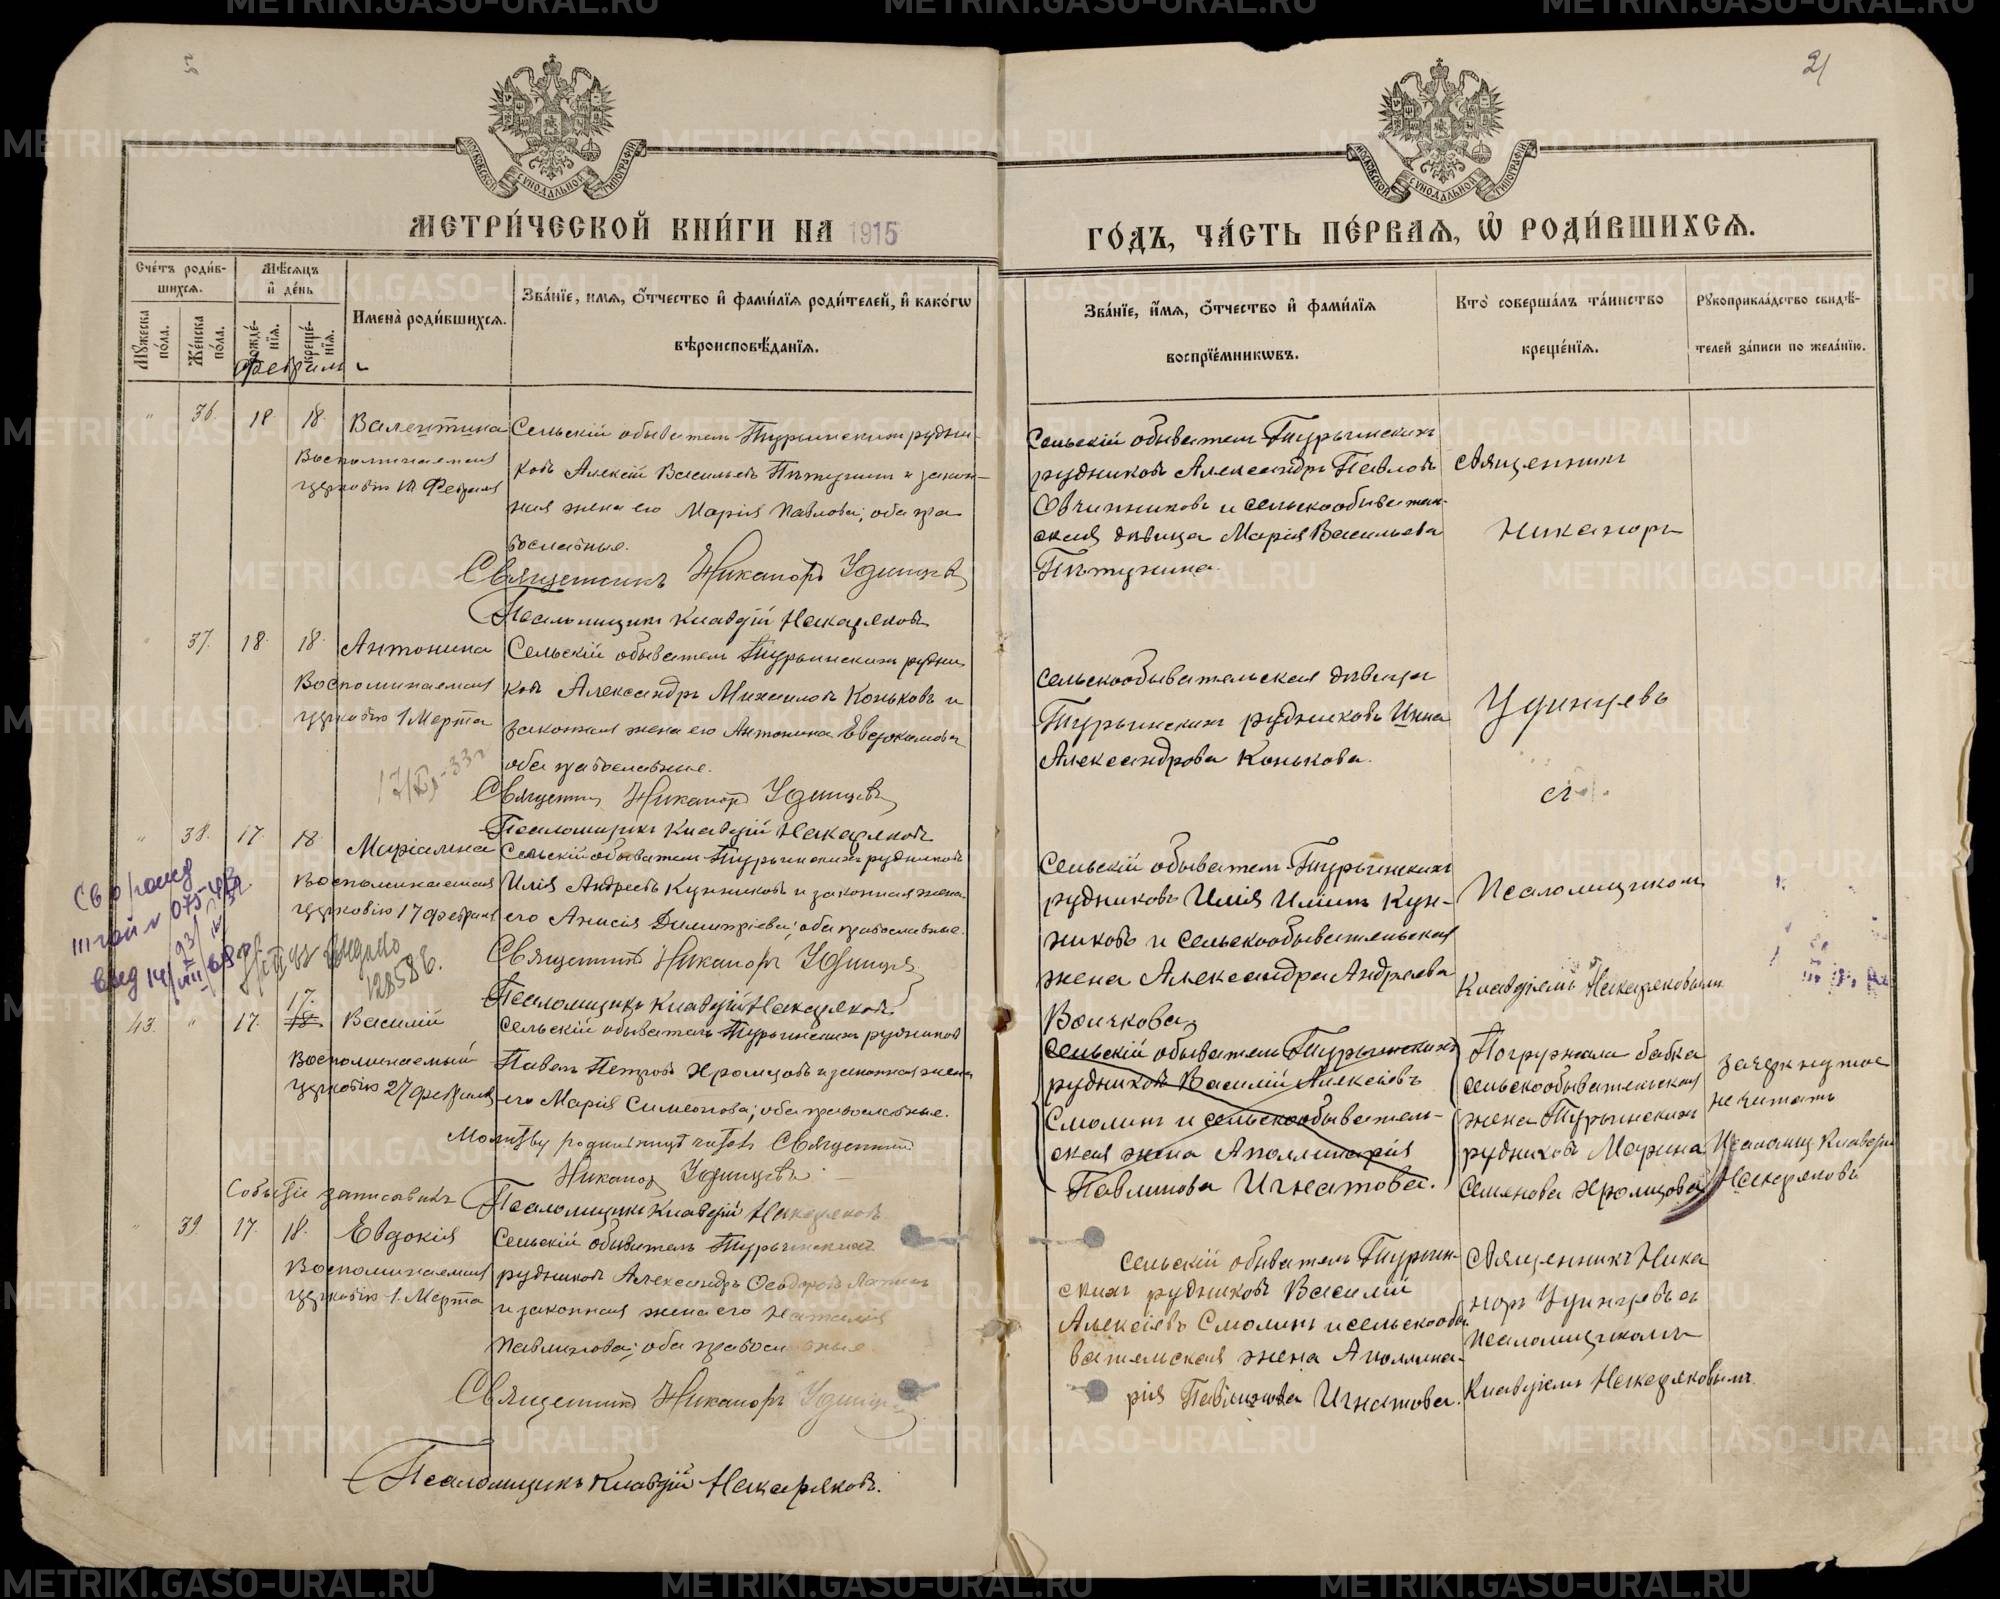 21
МОСКОВСКОЙ СѴНОДАЛЬНОЙ ТИПОГРАФІИ
МОСКОВСКОЙ СѴНОДАЛЬНОЙ ТИПОГРАФІИ
МЕТРИ́ЧЕСКОЙ КНИ́ГИ НА 1915
ГО́ДЪ, ЧА́СТЬ ПЕ́РВАѦ, Ѡ҆ РОДИ́ВШИХСѦ.
Сче́тъ роди́в-
шихсѧ.
Мꙋ́жеска по́ла.
Же́нска по́ла.
Мѣ́сѧцъ
и҆ де́нь
рожде́-нїѧ.
креще́-нїѧ.
Имена̀ роди́вшихсѧ.
Зва́нїе, имѧ, ѻ҆́тчество и҆ фами́лїѧ роди́телей, и҆ како́гѡ
вѣроисповѣ́данїѧ.
Зва́нїе, и҆́мѧ, ѻ҆́тчество и҆ фами́лїѧ
воспрїе́мникѡвъ.
Кто̀ соверша́лъ та́инство
креще́нїѧ.
Рꙋкоприкла́дство свидѣ́-
телей за́писи по жела́нїю.
Февраль
36. 18 18. Валентина
Воспоминаемая
церковію 10 Февраля
Сельскій обыватель Турьинскихъ рудни-
ковъ Алексій Васильевъ Пѣтунинъ и закон-
ная жена его Марія Павлова; оба пра
вославные.
Священникъ Никаноръ Удинцевъ
Псаломщикъ Клавдій Накаряковъ
Сельскій обыватель Турьинскихъ
рудниковъ Александръ Павловъ
Овчинниковъ и сельскообыватель-
ская дѣвица Марія Васильева
Пѣтунина.
Священникъ
Никаноръ
37. 18. 18. Антонина
Воспоминаемая
церковію 1 Марта
Сельскій обыватель Турьинскихъ рудни
ковъ Александръ Михаиловъ Коньковъ и
законная жена его Антонина Евдокимова
оба православные.
Священникъ Никаноръ Удинцевъ
Псаломщикъ Клавдій Накаряковъ
Сельскообывательская дѣвица
Турьинскихъ рудниковъ Инна
Александрова Конькова.
Удинцевъ
съ
38. 17. 18 Маріамна
Воспоминаемая
церковію 17 февраля
Сельскій обыватель Турьинскихъ рудниковъ
Илія Андреевъ Кунниковъ и законная жена
его Анисія Димитріева; оба православные.
Священникъ Никаноръ Удинцевъ
Псаломщикъ Клавдій Накаряковъ
Сельскій обыватель Турьинскихъ
рудниковъ Илія Илiинъ Кун-
никовъ и сельскообывательская
жена Александра Андреева
Волчкова.
Псаломщикомъ
Клавдіемъ Накаряковымъ
43. 17. 17. 18. Василій
Воспоминаемый
церковію 27 февраля
Сельскій обыватель Турьинскихъ рудниковъ
Павелъ Петровъ Хромцовъ и законная жена
его Марія Симеонова; оба православные.
Молитву родильницѣ читалъ Священникъ
Никаноръ Удинцевъ
Событіе записавшій
Псаломщикъ Клавдій Накаряковъ
Сельскій обыватель Турьинскихъ
рудниковъ Василій Алексіевъ
Смолинъ и сельскообыватель-
ская жена Аполлинарія
Павлинова Игнатова.
Погружала бабка
сельскообывательская
жена Турьинскихъ
рудниковъ Марина
Семенова Хромцова
зачеркнутое
не читать
Псаломщ. Клавдій
Накаряковъ
39. 17. 18. Евдокія
Воспоминаемая
церковію 1. Марта
Сельскій обыватель Турьинскихъ
рудниковъ Александръ Ѳеодоровъ Лапинъ
и законная жена его Наталія
Павлинова; оба православные.
Священникъ Никаноръ Удинцевъ
Псаломщикъ Клавдій Накаряковъ.
Сельскій обыватель Турьин-
скихъ рудниковъ Василій
Алексіевъ Смолинъ и сельскообы-
вательская жена Аполлина-
рія Павлинова Игнатова.
Священникъ Ника
норъ Удинцевъ съ
псаломщикомъ
Клавдіемъ Накаряковымъ
METRIKI.GASO-URAL.RU